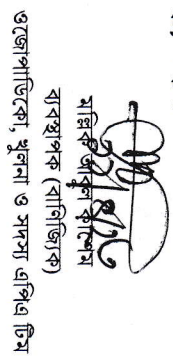 মল্লিক আবুল কাশেম
ব্যবস্থাপক (বাণিজ্যিক)
ওজোপাডিকো, খুলনা ও সদস্য এপিএ টিম